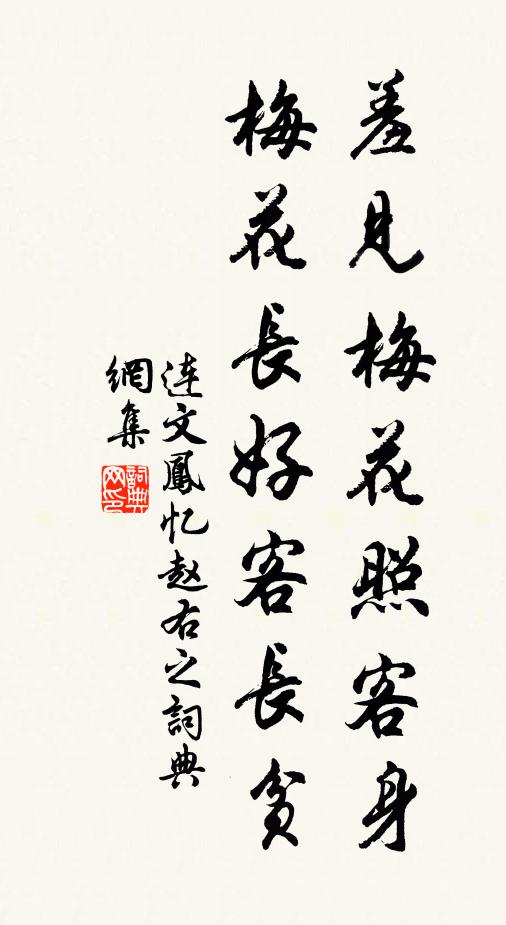 羞見梅花照客身
梅花長好客長貧
連文鳳忆赵右之詞典
網集
詞典
网印